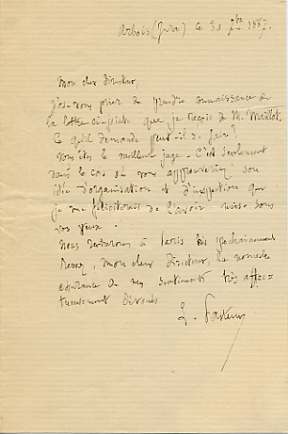 Arbois (Jura) ce 31 8bre 1887.
Mon cher Directeur,
Puis-je vous prier de prendre connaissance de
la lettre ci-jointe que je reçois de M. Maillot.
Ce qu'il demande peut-il se faire?
Vous êtes le meilleur juge. C'est seulement
dans le cas où vous approuveriez son
idée d'organisation et d'inspection que
je me féliciterais de l'avoir mise sous
vos yeux.
Nous rentrerons à Paris très prochainement
Recevez, mon cher Directeur, la nouvelle
assurance de mes sentiments très affec-
tueusement dévoués
L. Pasteur